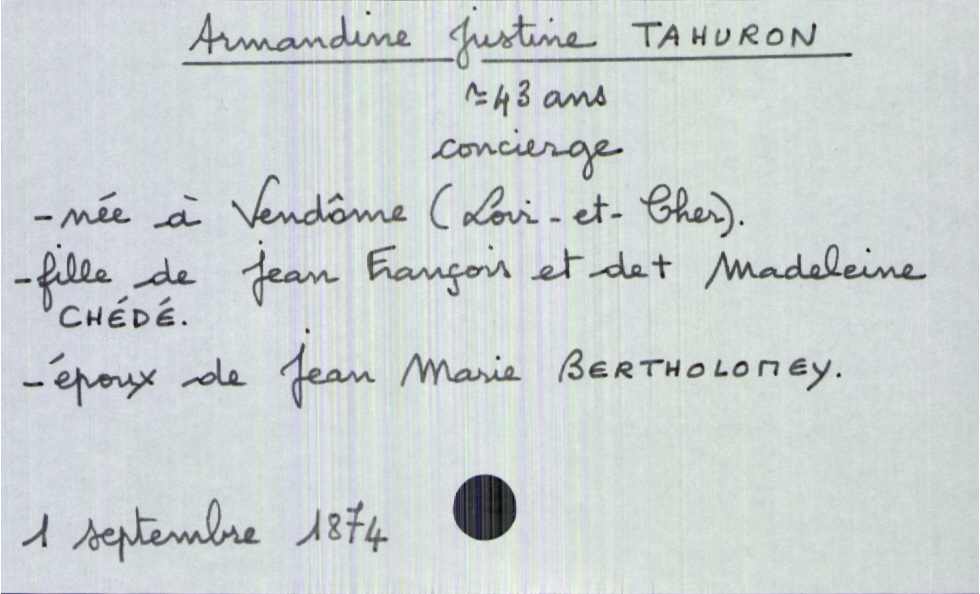 Armandine Justine TAHURON
≃43 ans
concierge
- née à Vendôme (Loir-et-Cher).
- fille de Jean François et de + Madeleine
CHÉDÉ.
- époux de Jean Marie BERTHOLOMEY.
1 septembre 1874